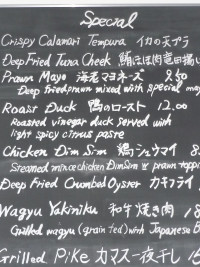 Special
Crispy Calamari Tempura イカの天プラ
Deep Fried Tuna Cheek 鮪ほほ肉竜田揚げ
Prawn Mayo 海老マヨネーズ 9.50
Deep fried prawn mixed with special may
Roast Duck 鴨のロースト 12.00
Roasted vinegar duck served with
light spicy citrus paste
Chicken Dim Sim 鶏シュウマイ 8
Steamed mince chicken Dim Sim w prawn toppi
Deep Fried Crumbed Oyster カキフライ
Wagyu Yakiniku 和牛焼き肉 18
Grilled wagyu (grain fed) with Japanese B
Grilled Pike カマス一夜干し 15